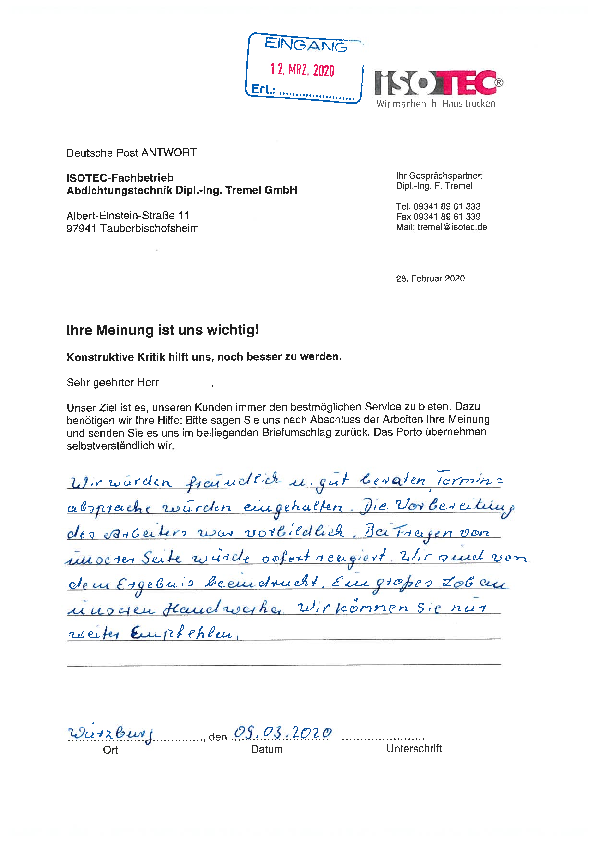 EINGANG
12. MRZ. 2020
Erl.:
ISOTEC®
Wir machen Ihr Haus trocken
Deutsche Post ANTWORT
ISOTEC-Fachbetrieb
Abdichtungstechnik Dipl.-Ing. Tremel GmbH
Albert-Einstein-Straße 11
97941 Tauberbischofsheim
Ihr Gesprächspartner:
Dipl.-Ing. F. Tremel
Tel. 09341 89 61 333
Fax 09341 89 61 339
Mail: tremel@isotec.de
28. Februar 2020
Ihre Meinung ist uns wichtig!
Konstruktive Kritik hilft uns, noch besser zu werden.
Sehr geehrter Herr ,
Unser Ziel ist es, unseren Kunden immer den bestmöglichen Service zu bieten. Dazu
benötigen wir Ihre Hilfe: Bitte sagen Sie uns nach Abschluss der Arbeiten Ihre Meinung
und senden Sie es uns im beiliegenden Briefumschlag zurück. Das Porto übernehmen
selbstverständlich wir.
Wir wurden freundlich u. gut beraten, Termin=
absprache wurden eingehalten. Die Vorbereitung
des Arbeiters war vorbildlich. Bei Fragen von
unserer Seite wurde sofort reagiert. Wir sind von
dem Ergebnis beeindruckt. Ein großes Lob an
unseren Handwerker. Wir können Sie nur
weiter Empfehlen.
Würzburg, den 09.03.2020
Ort Datum Unterschrift